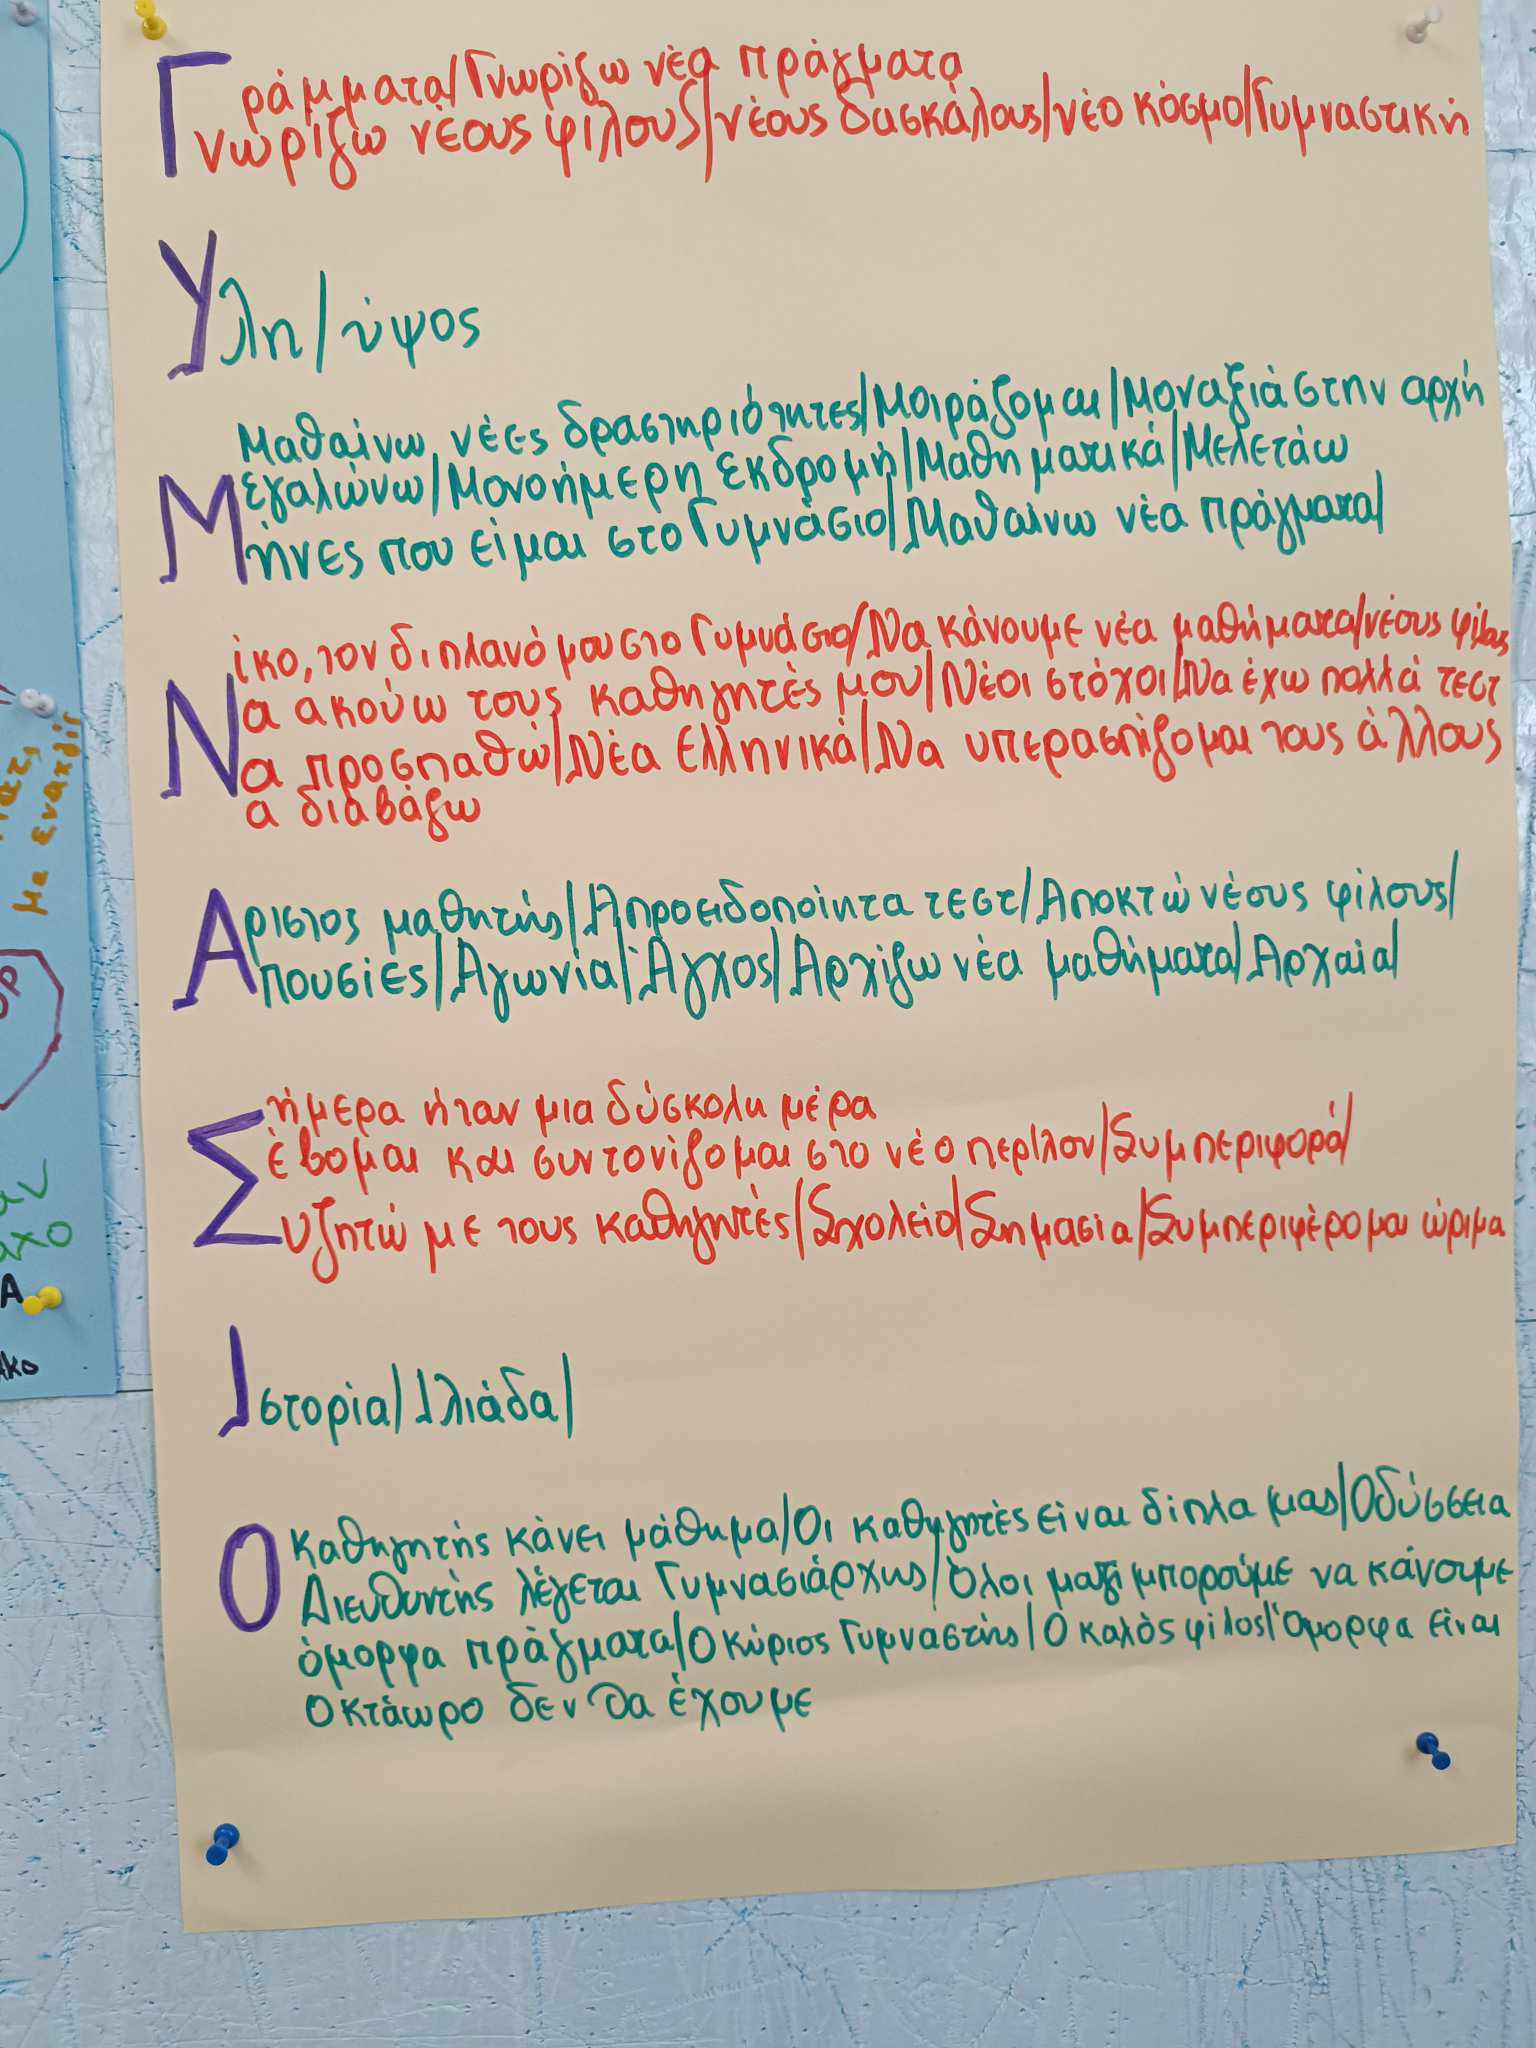 Γράμματα/Γνωρίζω νέα πράγματα
νωρίζω νέους φίλους/νέους δασκάλους/νέο κόσμο/Γυμναστική
Υλη/ύψος
Μαθαίνω νέες δραστηριότητες/Μοιράζομαι/Μοναξιά στην αρχή
εγαλώνω/Μονοήμερη εκδρομή/Μαθηματικά/Μελετάω
ήνες που είμαι στο Γυμνάσιο/Μαθαίνω νέα πράγματα/
Νίκο, τον διπλανό μου στο Γυμνάσιο/Να κάνουμε νέα μαθήματα/νέους φίλους
α ακούω τους καθηγητές μου/Νέοι στόχοι/Να έχω πολλά τεστ
α προσπαθώ/Νέα Ελληνικά/Να υπερασπίζομαι τους άλλους
α διαβάζω
Αριστος μαθητής/Απροειδοποίητα τεστ/Αποκτώ νέους φίλους/
πουσίες/Αγωνία/Άγχος/Αρχίζω νέα μαθήματα/Αρχαία/
Σήμερα ήταν μια δύσκολη μέρα
έβομαι και συντονίζομαι στο νέο περίλον/Συμπεριφορά/
υζητώ με τους καθηγητές/Σχολείο/Σημασία/Συμπεριφέρομαι ώριμα
Ιστορία/Ιλιάδα/
Ο καθηγητής κάνει μάθημα/Οι καθηγητές είναι δίπλα μας/Οδύσσεια
Διευθυντής λέγεται Γυμνασιάρχης/Όλοι μαζί μπορούμε να κάνουμε
όμορφα πράγματα/Ο κύριος Γυμναστής/Ο καλός φίλος/Όμορφα είναι
Οκτάωρο δεν θα έχουμε
με εναχλεί
αν
άχο
Α
άκο